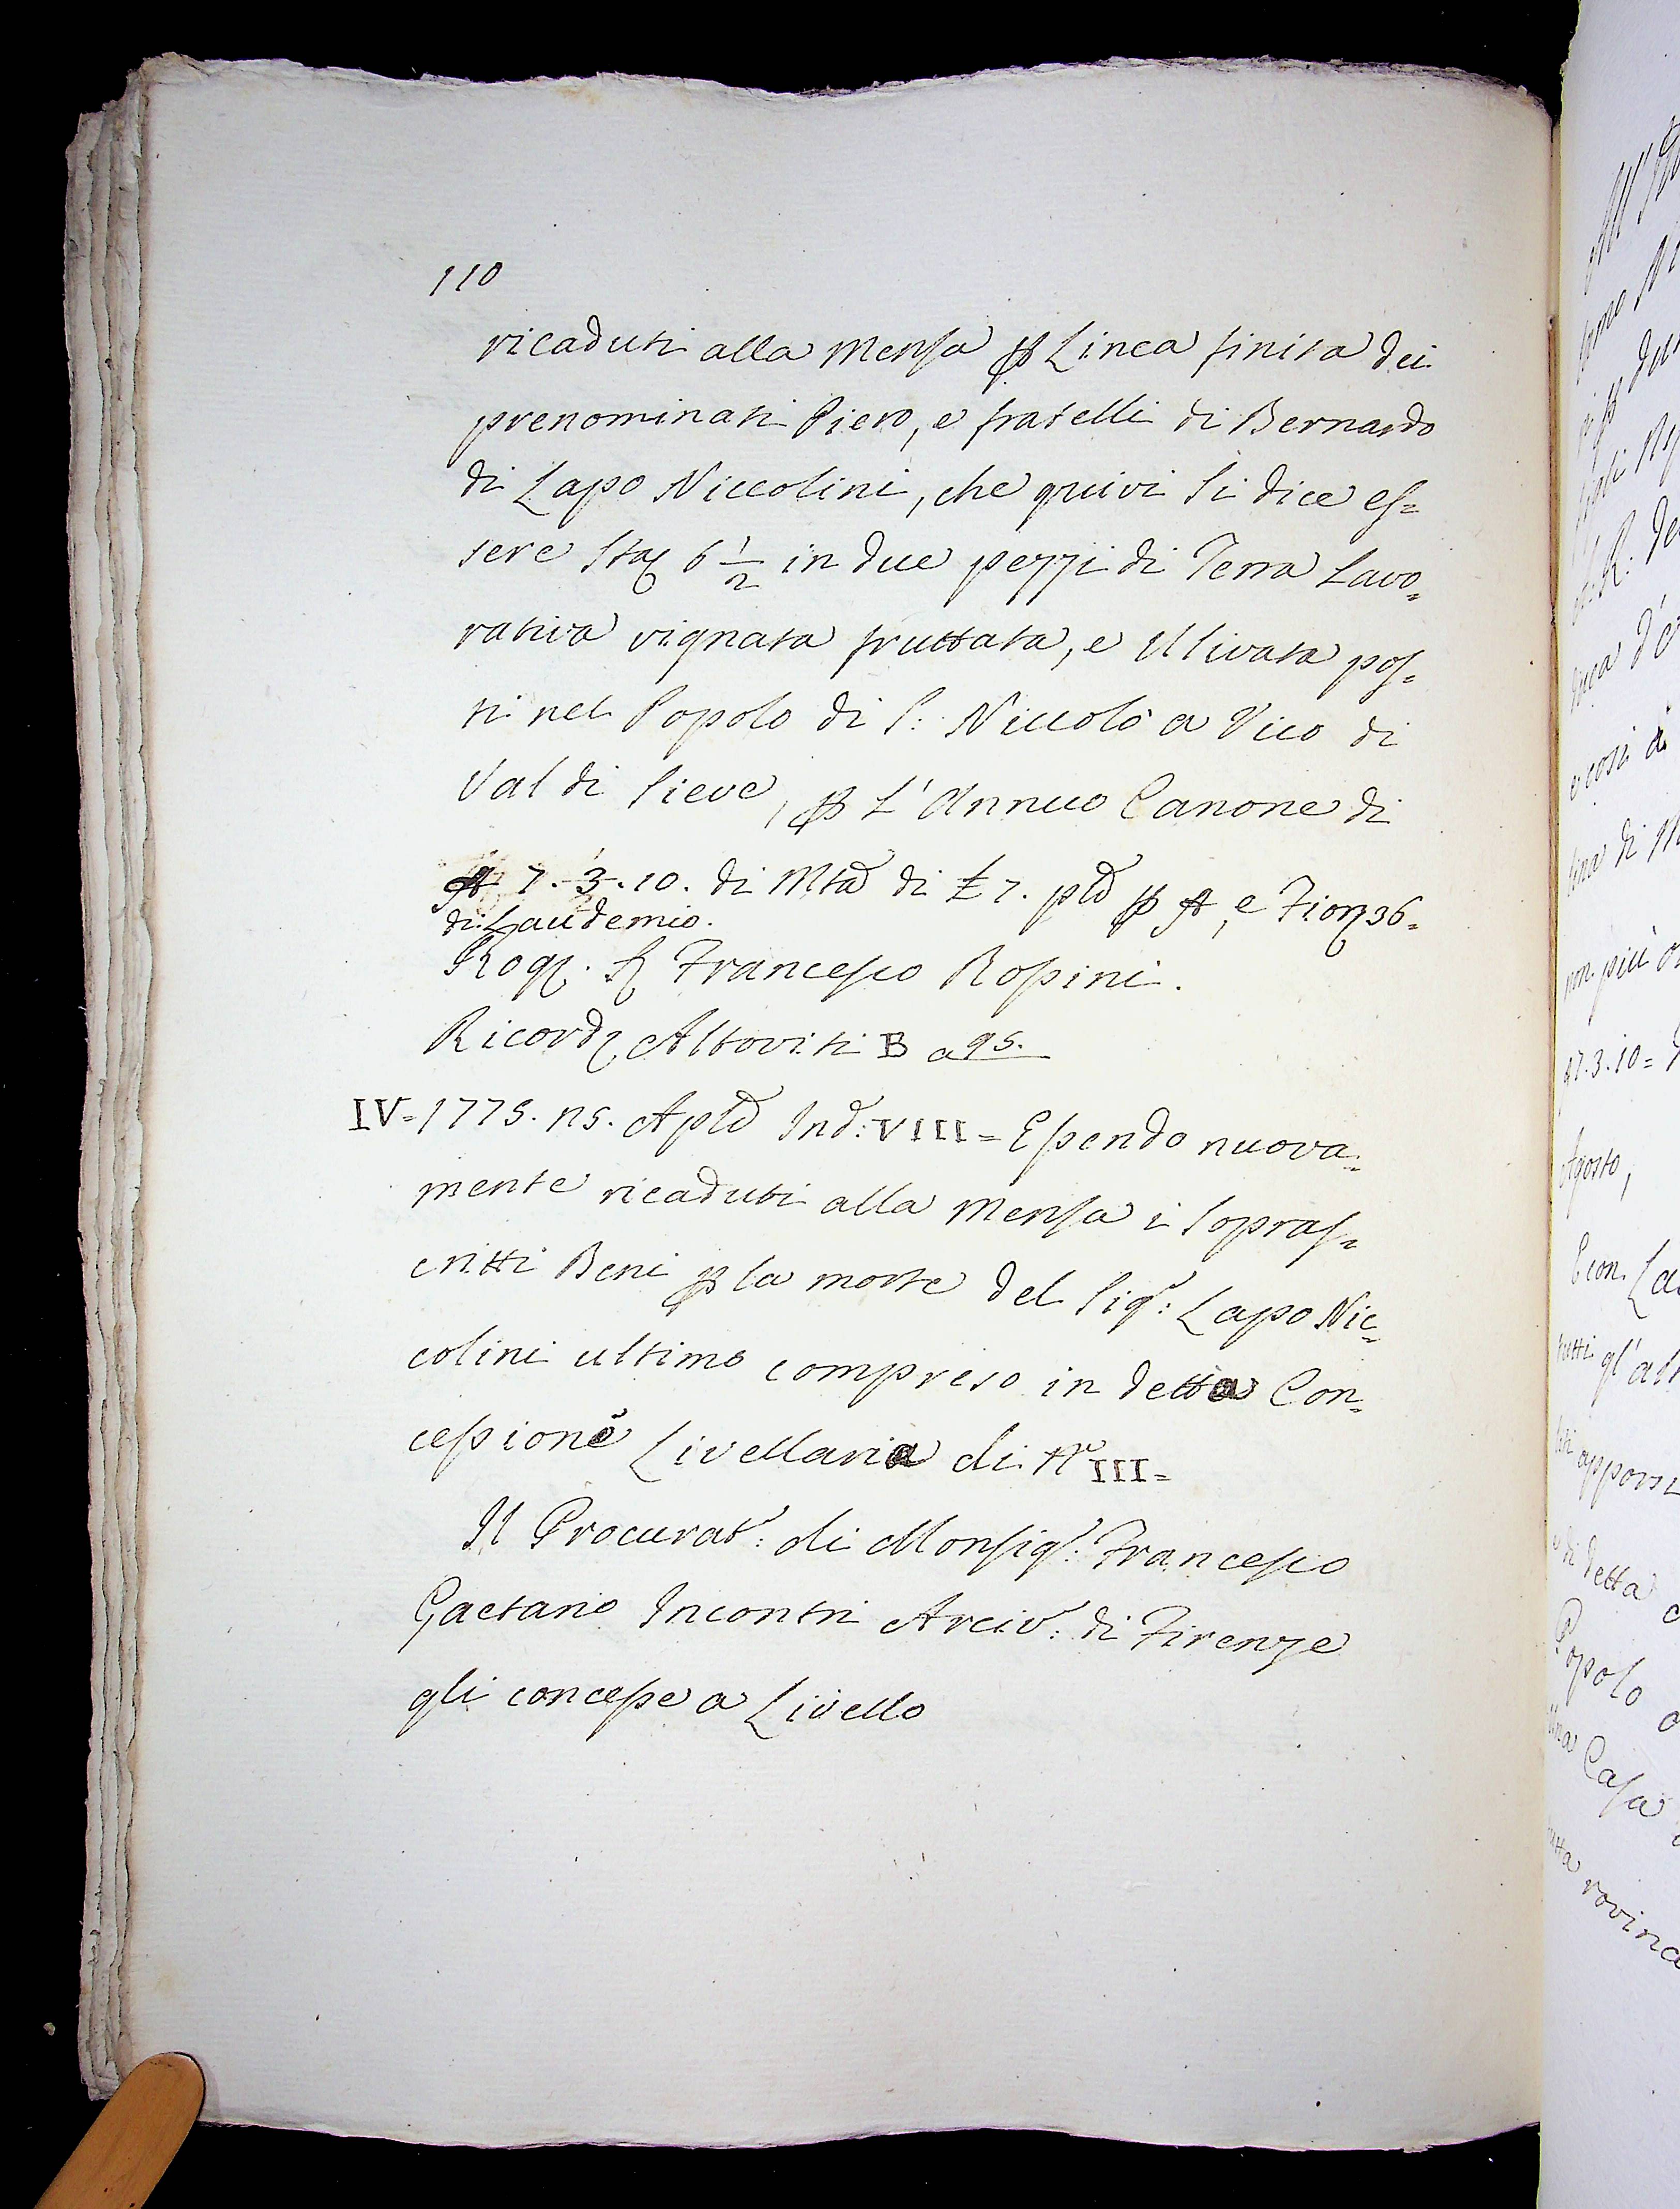 110
ricaduti alla Mensa ꝑ Linea finita dei
prenominati Piero, e fratelli di Bernardo
di Lapo Niccolini, che quivi si dice es=
sere Sta 6 1/2 in due pezzi di Terra Lavo=
rativa vignata fruttata, e Ulivata pos=
ti nel Popolo di S: Niccolò a Vico di
Val di Sieve, ꝑ L'Annuo Canone di
7.-3-.10. di Mtà di £ 7. ꝑ , e Fior 36=
di Laudemio.
Rog. Sr Francesco Rossini.
Ricord Altoviti B a 95.
IV=1775. 25. Aple Ind: VIII= Essendo nuova=
mente ricaduti alla Mensa i Sopras=
critti Beni ꝑ la morte del Sigr: Lapo Nic=
colini ultimo compreso in detta Con=
cessione Livellaria di No III=
Il Procurat: di Monsigr: Francesco
Gaetano Incontri Arciv: di Firenze
gli concesse a Livello
Agosto,
E con La
tutti gl'alt
e di detta
Popolo
una Casa
rovina